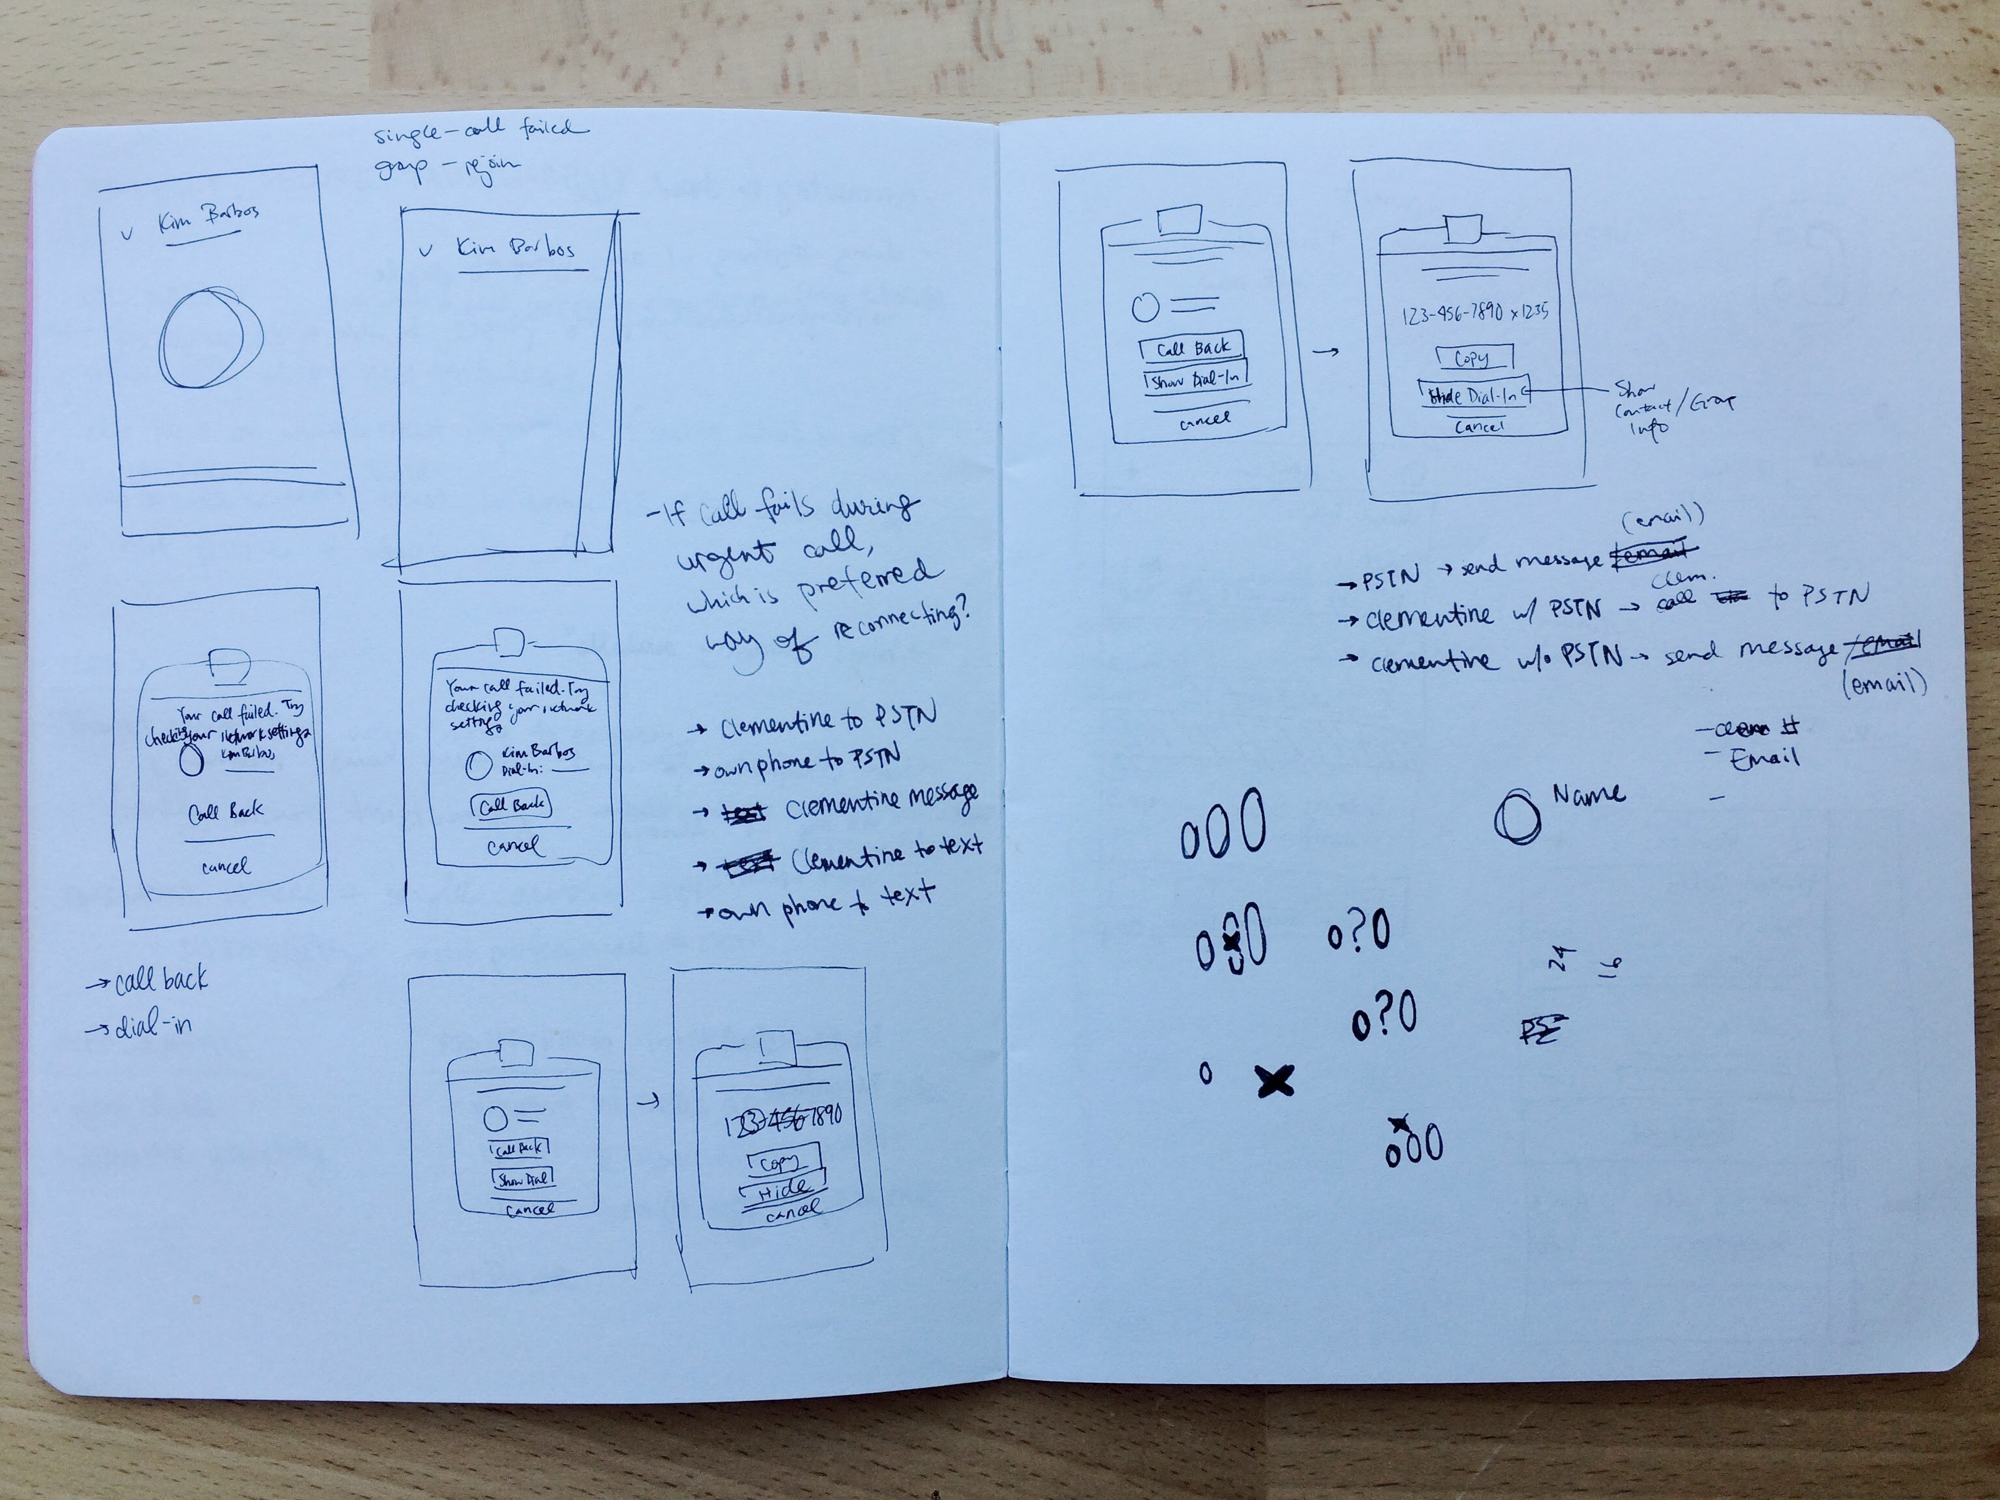 single-call failed
group - rejoin
Kim Barbos
Kim Barbos
Your call failed. Try
checking your network settings
Kim Barbos
Call Back
cancel
Your call failed. Try
checking your network
settings
Kim Barbos
Dial-In:
Call Back
cancel
- If call fails during
urgent call,
which is preferred
way of reconnecting?
→ Clementine to PSTN
→ own phone to PSTN
→ text Clementine message
→ text Clementine to text
→ own phone to text
→ call back
→ dial-in
Call Back
Show Dial
cancel
123-456-7890
Copy
Hide
cancel
Call Back
Show Dial-In
cancel
123-456-7890 x1235
Copy
Hide Dial-In
Cancel
Show
Contact/Group
Info
(email)
→ PSTN → send message /email
clem.
→ clementine w/ PSTN → call to PSTN
→ clementine w/o PSTN → send message /email
(email)
- clem #
- Email
-
Name
o?o
o?o
24
16